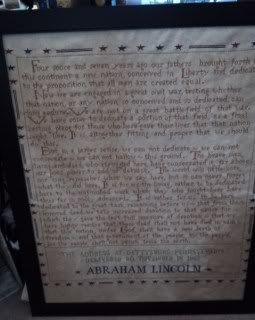 Four score and seven years ago our fathers brought forth on
this continent a new nation, conceived in Liberty and dedicated
to the proposition that all men are created equal.
Now we are engaged in a great civil war, testing whether
that nation, or any nation so conceived and so dedicated, can
long endure. We are met on a great battlefield of that war.
We have come to dedicate a portion of that field, as a final
resting place for those who here gave their lives that that nation
might live. It is altogether fitting and proper that we should
do this.
But, in a larger sense, we can not dedicate we can not
consecrate we can not hallow this ground. The brave men,
living and dead, who struggled here, have consecrated it far above
our poor power to add or detract. The world will little
note, nor long remember what we say here, but it can never forget
what they did here. It is for us the living, rather, to be dedicated
here to the unfinished work which they who fought here have
thus far so nobly advanced. It is rather for us to be here
dedicated to the great task remaining before us that from these
honored dead we take increased devotion to that cause for
which they gave the last full measure of devotion that we
here highly resolve that these dead shall not have died in vain
that this nation, under God, shall have a new birth of
freedom and that government of the people, by the people,
for the people, shall not perish from the earth.
THE ADDRESS AT GETTYSBURG PENNSYLVANIA
DELIVERED ON NOVEMBER 19 1863
ABRAHAM LINCOLN